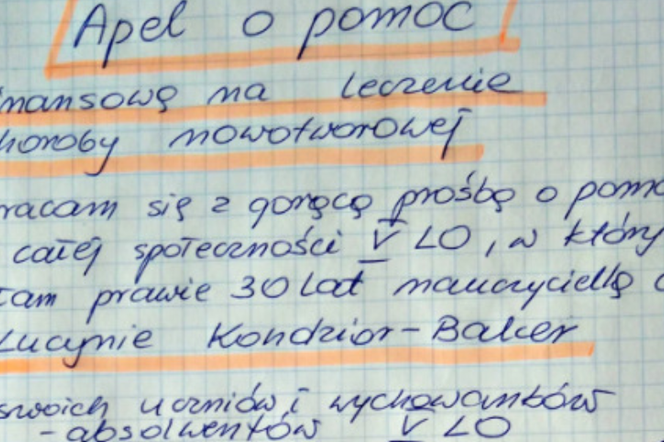 Apel o pomoc!
nansową na leczenie
horoby nowotworowej
racam się z gorącą prośbą o pomo
całej społeczności V LO, w który
łam prawie 30 lat nauczycielką
Lucynie Kondzior-Baker
swoich uczniów i wychowanków
- absolwentów V LO